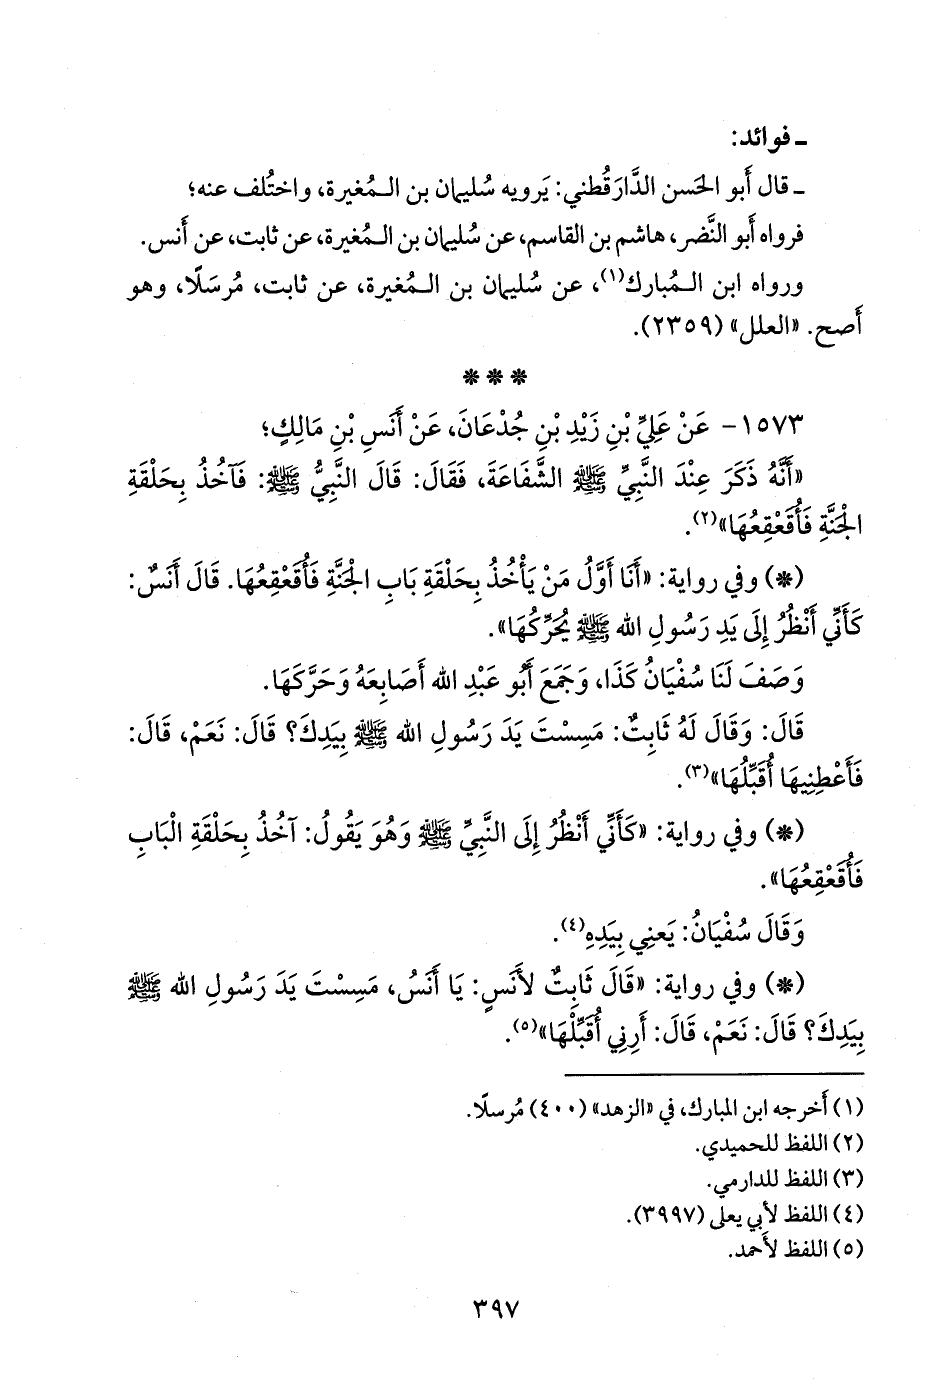 ـ فوائد:
ـ قال أَبو الحَسن الدَّارَقُطني: يَرويه سُليمان بن الـمُغيرة، واختُلف عنه؛
فرواه أَبو النَّضر، هاشم بن القاسم، عن سُليمان بن الـمُغيرة، عن ثابت، عن أَنس.
ورواه ابن الـمُبارك(١)، عن سُليمان بن الـمُغيرة، عن ثابت، مُرسَلًا، وهو
أَصح. «العلل» (٢٣٥٩).
* * *
١٥٧٣- عَنْ عَلِيِّ بْنِ زَيْدِ بْنِ جُدْعَانَ، عَنْ أَنَسِ بْنِ مَالِكٍ؛
«أَنَّهُ ذَكَرَ عِنْدَ النَّبِيِّ ﷺ الشَّفَاعَةَ، فَقَالَ: قَالَ النَّبِيُّ ﷺ: فَآخُذُ بِحَلْقَةِ
الْجَنَّةِ فَأُقَعْقِعُهَا»(٢).
(*) وفي رواية: «أَنَا أَوَّلُ مَنْ يَأْخُذُ بِحَلْقَةِ بَابِ الْجَنَّةِ فَأُقَعْقِعُهَا. قَالَ أَنَسٌ:
كَأَنِّي أَنْظُرُ إِلَى يَدِ رَسُولِ الله ﷺ يُحَرِّكُهَا».
وَصَفَ لَنَا سُفْيَانُ كَذَا، وَجَمَعَ أَبُو عَبْدِ الله أَصَابِعَهُ وَحَرَّكَهَا.
قَالَ: وَقَالَ لَهُ ثَابِتٌ: مَسِسْتَ يَدَ رَسُولِ الله ﷺ بِيَدِكَ؟ قَالَ: نَعَمْ، قَالَ:
فَأَعْطِنِيهَا أُقَبِّلُهَا»(٣).
(*) وفي رواية: «كَأَنِّي أَنْظُرُ إِلَى النَّبِيِّ ﷺ وَهُوَ يَقُولُ: آخُذُ بِحَلْقَةِ الْبَابِ
فَأُقَعْقِعُهَا».
وَقَالَ سُفْيَانُ: يَعنِي بِيَدِهِ(٤).
(*) وفي رواية: «قَالَ ثَابِتٌ لأَنَسٍ: يَا أَنَسُ، مَسِسْتَ يَدَ رَسُولِ الله ﷺ
بِيَدِكَ؟ قَالَ: نَعَمْ، قَالَ: أَرِنِي أُقَبِّلْهَا»(٥).
(١) أَخرجه ابن المبارك، في «الزهد» (٤٠٠) مُرسلًا.
(٢) اللفظ للحميدي.
(٣) اللفظ للدارمي.
(٤) اللفظ لأَبي يعلى (٣٩٩٧).
(٥) اللفظ لأَحمد.
٣٩٧